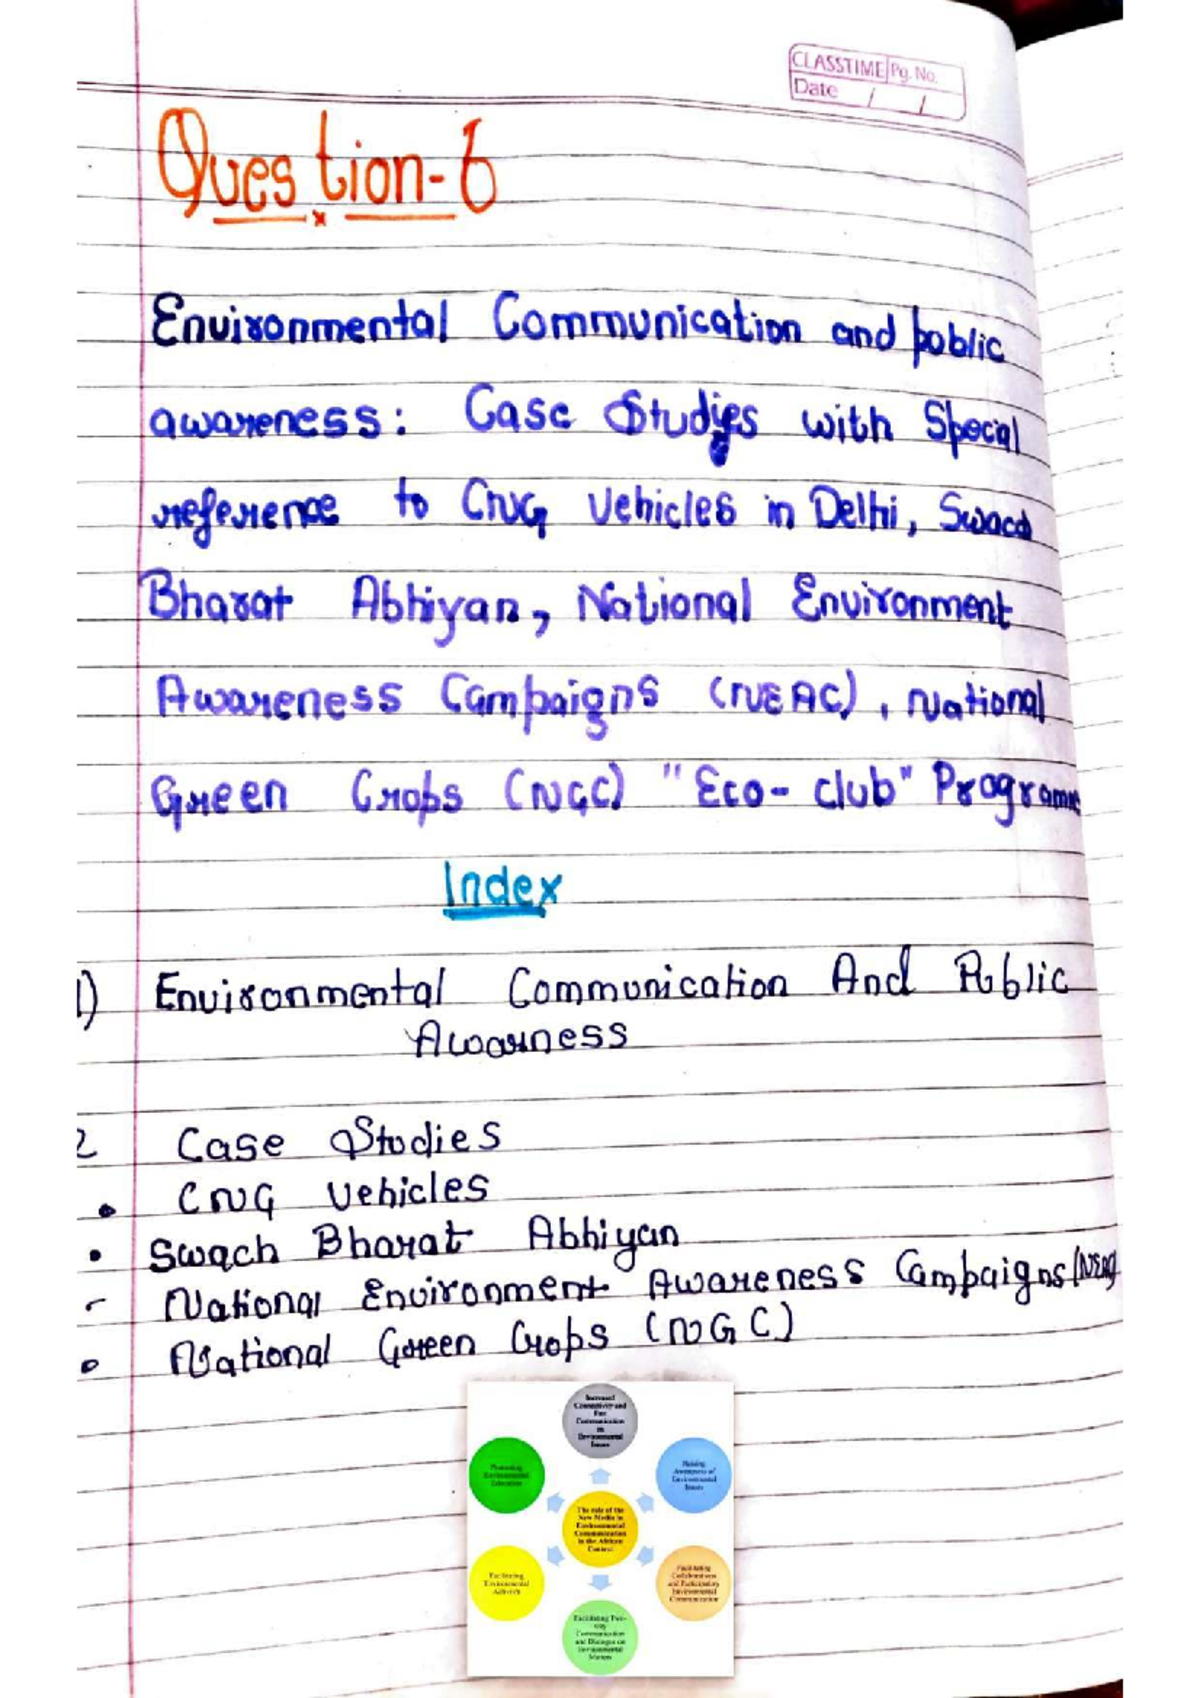 CLASSTIME Pg. No.
Date / /
Question-6
Environmental Communication and poblic
awareness: Case Studies with Special
reference to CNG Vehicles in Delhi, Swach
Bharat Abhiyan, National Environment
Awareness Campaigns (NEAC), National
Green Crops (NGC) "Eco-club" Programme
Index
1) Environmental Communication And Public
Awarness
2 Case Studies
• CNG Vehicles
• Swach Bharat Abhiyan
- National Environment Awareness Campaigns (NEAC)
• National Green Crops (NGC)
Increased
Connectivity and
Communication
Environmental
Issues
Promoting
Environmental
Education
Raising
Awareness of
Environmental
Issues
The role of the
New Media in
Environmental
Communication
in the African
Context
Facilitating
Environmental
Activism
Facilitating
Collaborations
and Participatory
Environmental
Communication
Facilitating Two-
way
Communication
and Dialogue on
Environmental
Matters